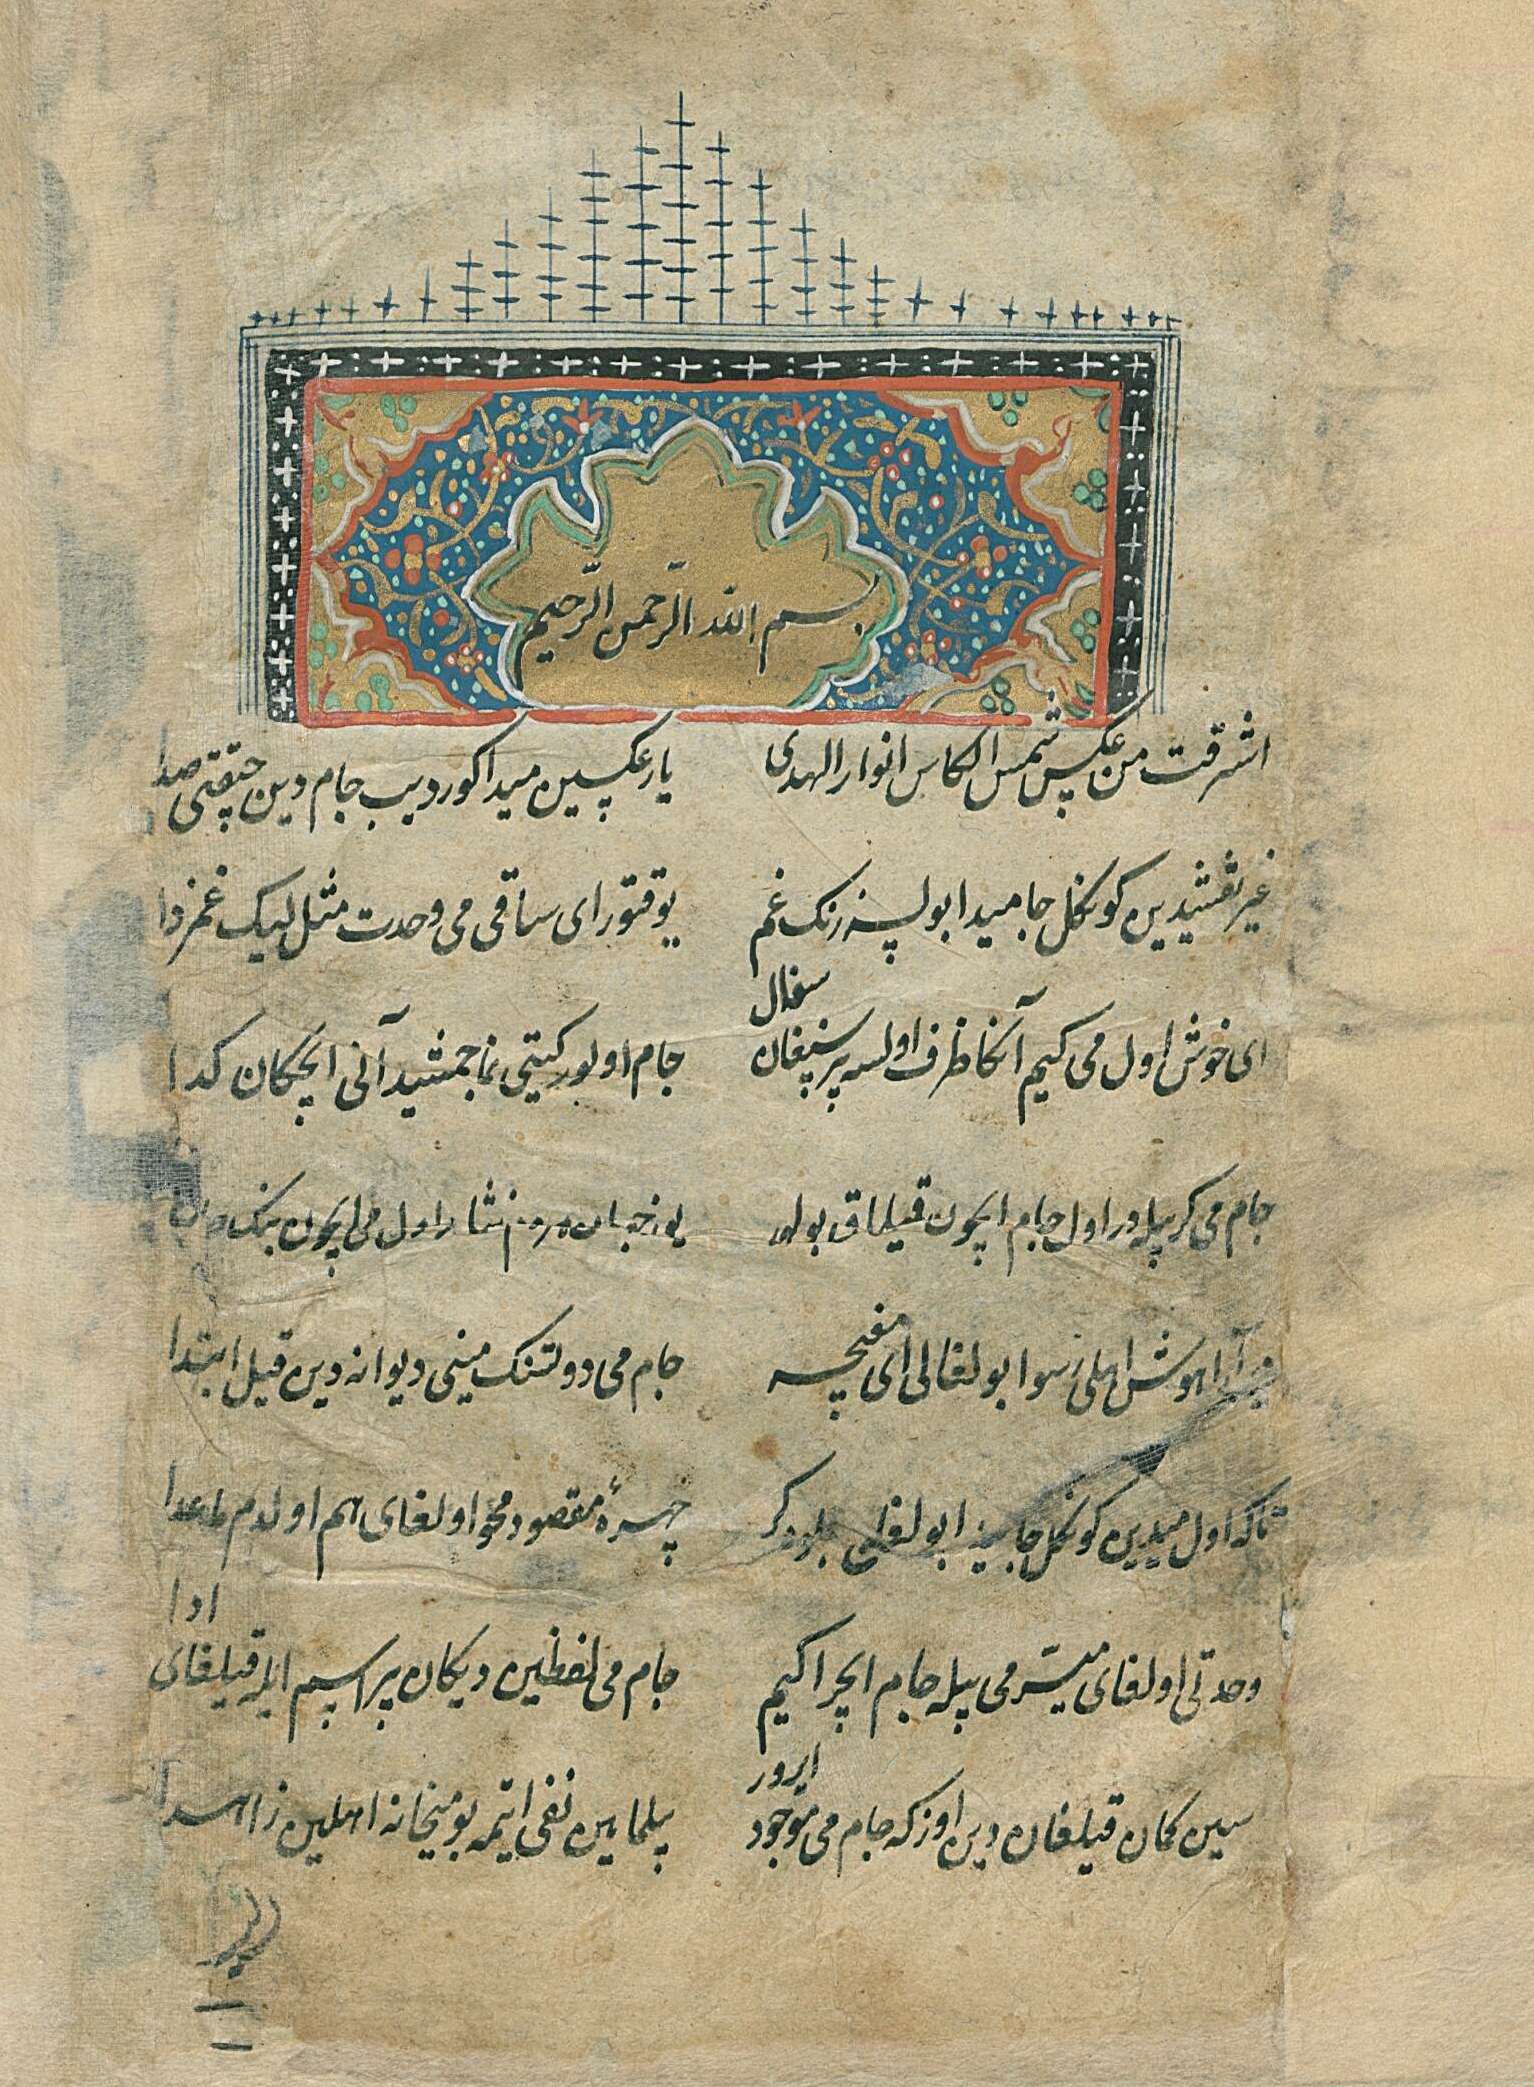 بسم الله الرّحمن الرّحیم
اشرقت من عکس شمس الکاس انوار الهدی
یار عکسین میدا کور دیب جام دین چیقتی صدا
غیر نقشیدین کونکل جامیدا بولسه زنک غم
یوقتور ای ساقی می وحدت مثل لیک غمزدا
ای خوش اول می کیم آنکا ظرف اولسه بیر سینغان سفال
جام اولور کیتی نما جمشید آنی ایچکان کدا
جام می کر بیله دور اول جام ایچون قیلماق بولور
یوز جهان هر دم نثار اول می ایچون مینک
هوش اهلی رسوا بولغالی ای مغبچه
جام می دوتسنک مینی دیوانه دین قیل ابتدا
تاکه اول میدین کونکل جامیدا بولغای جلوه کر
چهرهٔ مقصود محو اولغای هم اولدم ماعدا
وحدتی اولغای میسّر می بیله جام ایچرا کیم
جام می لفظین دیکان بیر اسم ایله قیلغای ادا
سین کمان قیلغان دین اوزکه جام می موجود ایرور
بیلمایین نفی ایتمه بو میخانه اهلین زاهدا